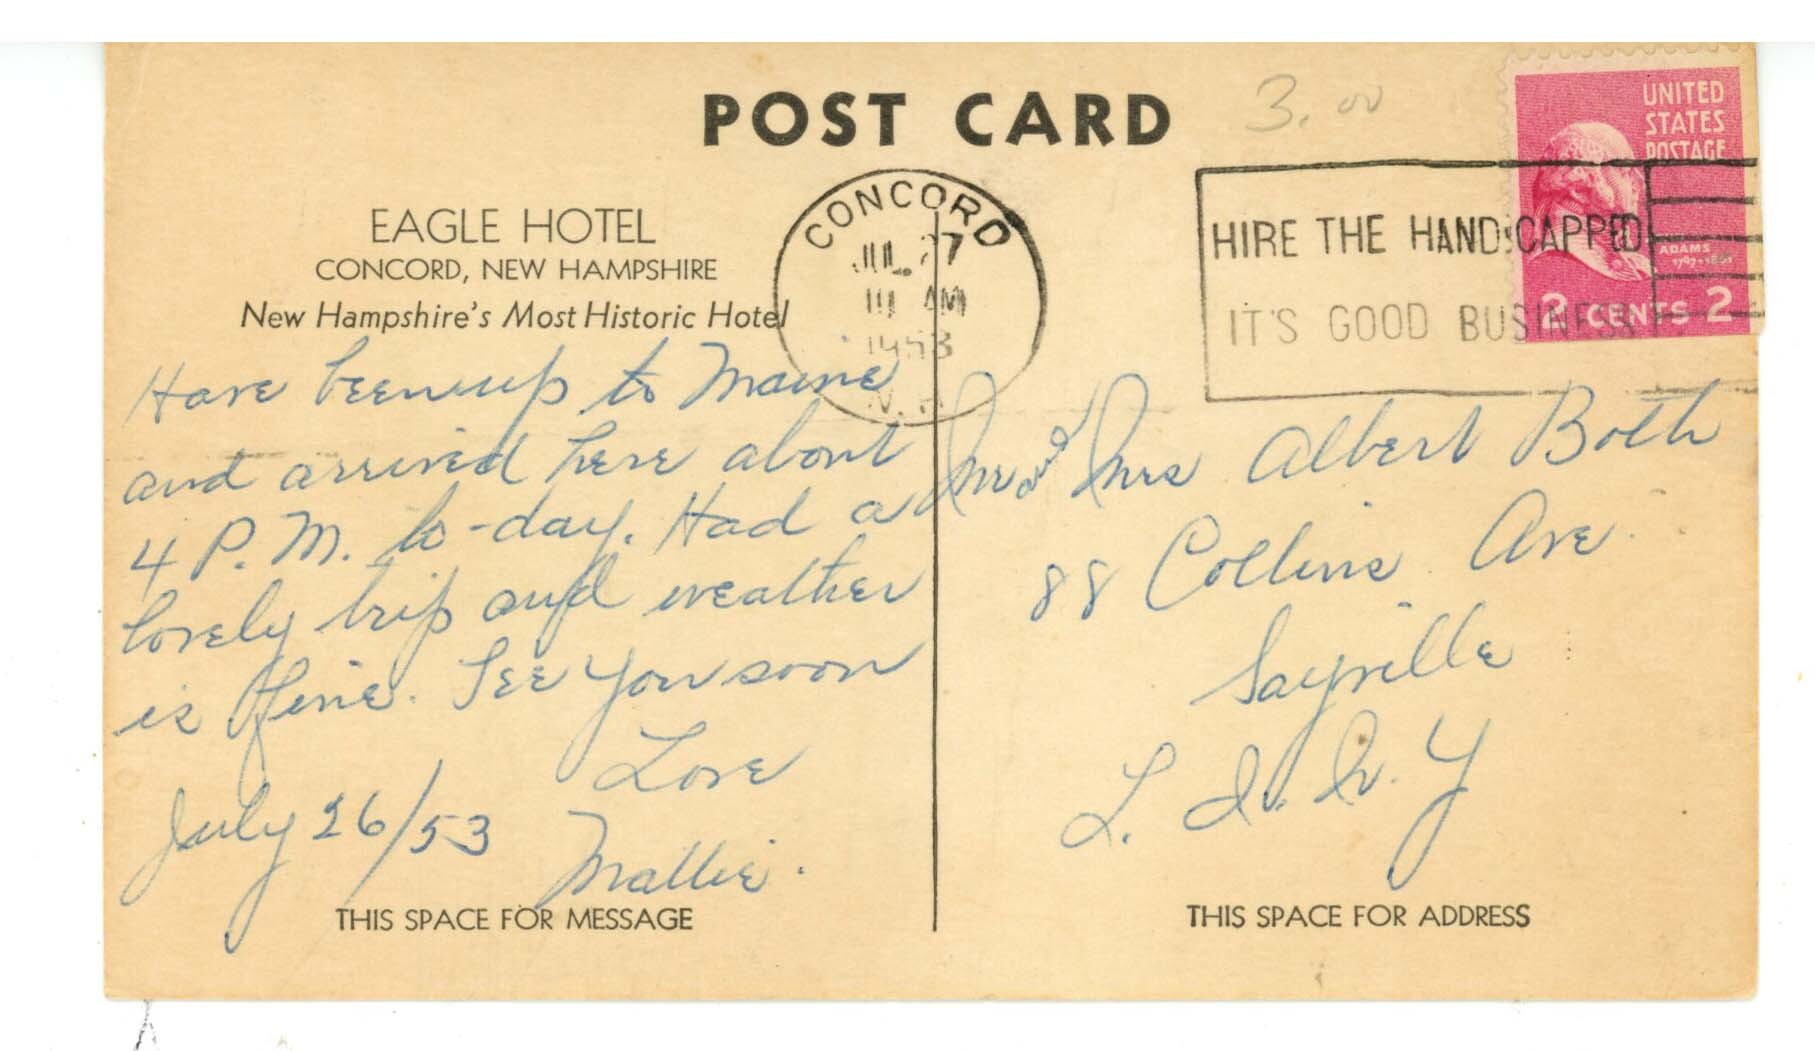 POST CARD
3.00
UNITED
STATES
POSTAGE
ADAMS
1797-1801
2 CENTS 2
EAGLE HOTEL
CONCORD, NEW HAMPSHIRE
New Hampshire's Most Historic Hotel
CONCORD
JUL 27
AM
1953
N.H.
HIRE THE HANDICAPPED
IT'S GOOD BUSINESS
Have been up to Maine
and arrived here about
4 P.M. to-day. Had a
lovely trip and weather
is fine. See you soon
Love
Mallie.
July 26/53
Mr and Mrs Albert Both
88 Collins Ave.
Sayville
L. I. N. Y
THIS SPACE FOR MESSAGE
THIS SPACE FOR ADDRESS